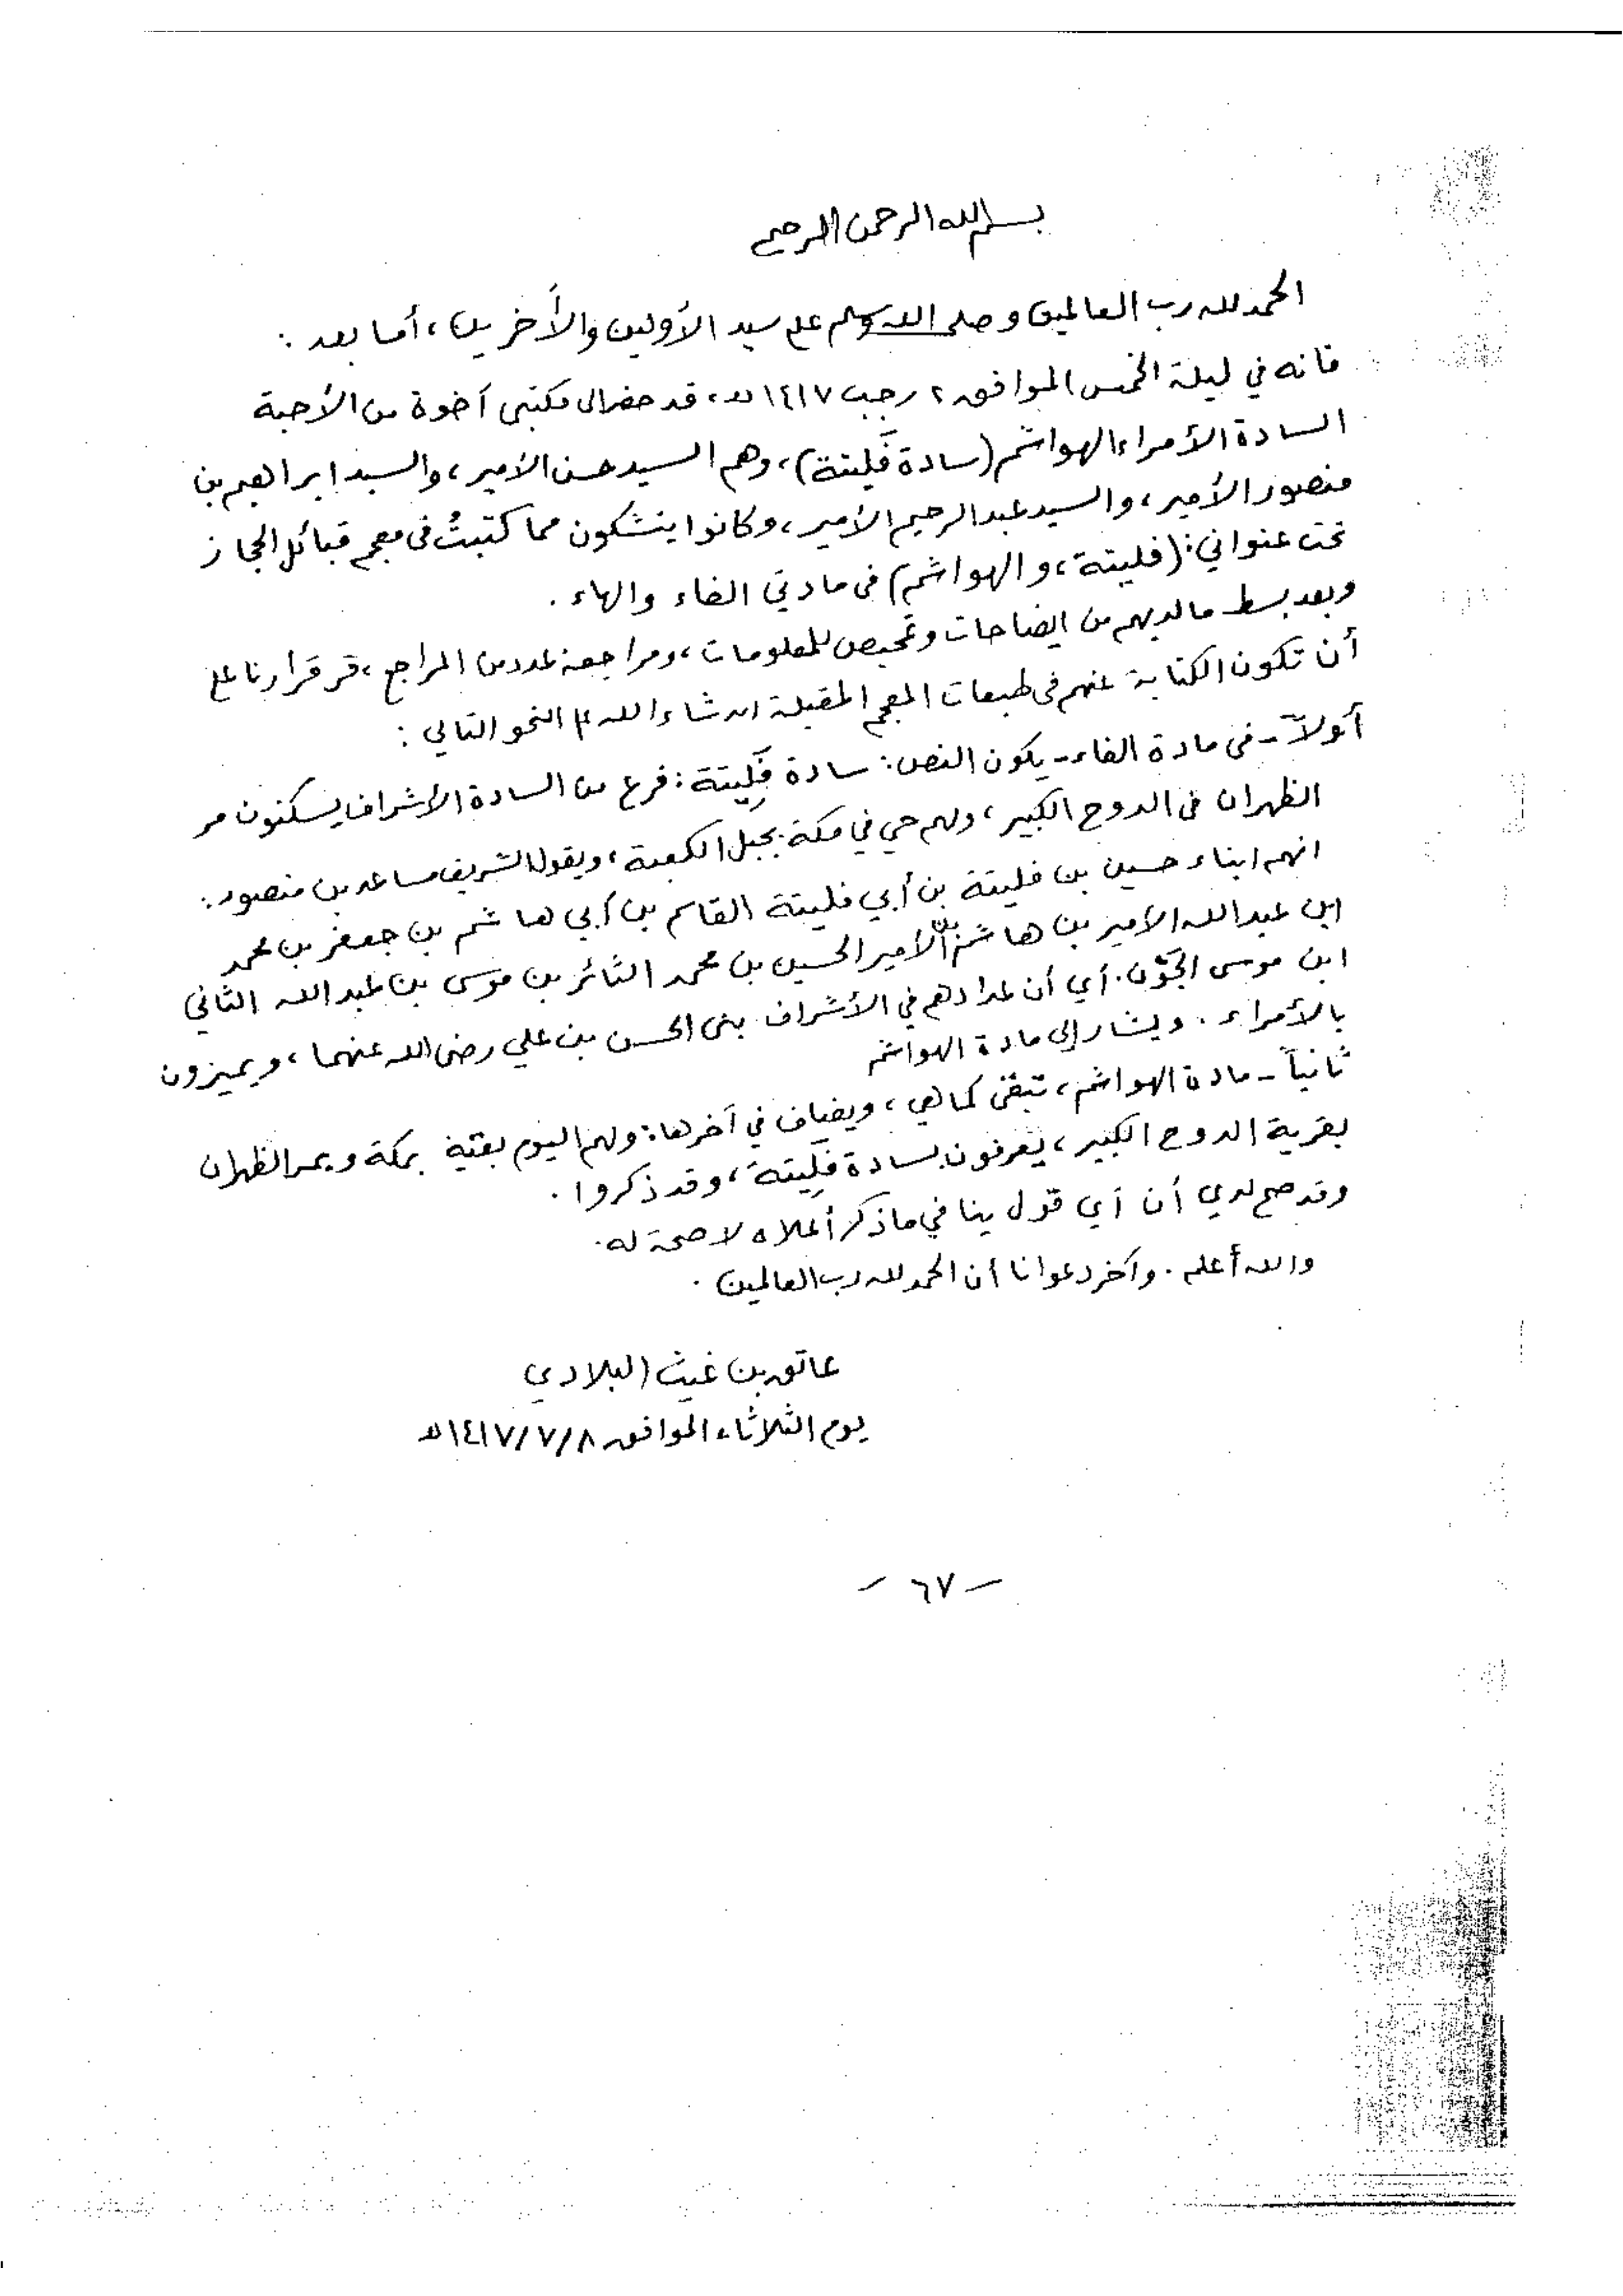 بسم الله الرحمن الرحيم
الحمد لله رب العالمين وصلى الله وسلم على سيد الأولين والأخرين، أما بعد :
فانه في ليلة الخميس الموافق ٢ رجب ١٤١٧ هـ، قد حضر الى مكتبى أخوة من الأحبة
السادة الأمراء الهواشم (سادة فَليتة)، وهم السيد حسن الأمير، والسيد ابراهيم بن
منصور الأمير، والسيد عبد الرحيم الأمير، وكانوا يتشكون مما كتبتُ فى معجم قبائل الحجاز
تحت عنواني: (فليتة، والهواشم) فى مادتي الفاء والهاء .
وبعد بسط ما لديهم من ايضاحات وتمحيص للمعلومات، ومراجعة لعدد من المراجع، قر قرارنا على
أن تكون الكتابة عنهم فى طبعات المعجم المقبلة ان شاء الله النحو التالي :
أولاً - فى مادة الفاء - يكون النص: سادة فَلِيتة: فرع من السادة الأشراف يسكنون مر
الظهران فى الدوح الكبير، ولهم حي في مكة بجبل الكعبة، ويقول الشريف مساعد بن منصور:
انهم ابناء حسين بن فليتة بن أبي فليتة القاسم بن أبي هاشم بن جعفر بن محمد
ابن عبد الله الأمير بن هاشم بن الأمير الحسين بن محمد الثائر بن موسى بن عبد الله الثاني
ابن موسى الجَوْن. أي أن عدادهم في الأشراف بنى الحسن بن علي رضى الله عنهما، ويميزون
بالأمراء . ويشار إلى مادة الهواشم
ثانياً - مادة الهواشم، تبقى كما هي، ويضاف في آخرها: ولهم اليوم بقية بمكة وبمر الظهران
بقرية الدوح الكبير، يعرفون بسادة فَلِيتة، وقد ذكروا .
وقد صح لدي أن أي قول ينافي ما ذكر أعلاه لا صحة له.
والله أعلم . وآخر دعوانا أن الحمد لله رب العالمين .
عاتق بن غيث البلادي
يوم الثلاثاء الموافق ١٤١٧/٧/٨ هـ
- ٦٧ -